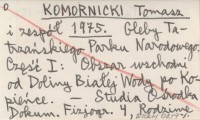 KOMORNICKI Tomasz
i zespół 1975. Gleby Ta-
trzańskiego Parku Narodowego.
Część I: Obszar wschodu
od Doliny Białej Wody po Ko-
pieńce. — Studia Ośrodka
Dokum. Fizjogr. 4; Rodzime